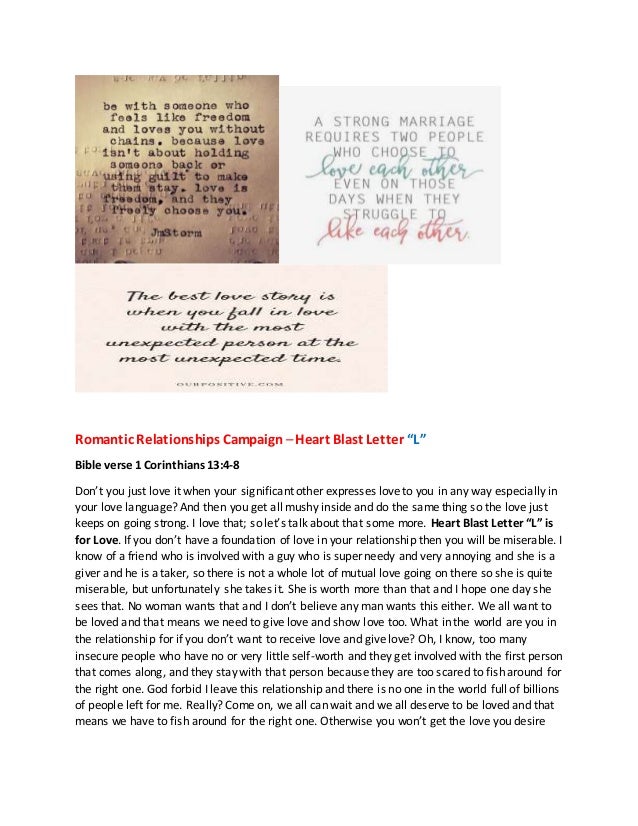 be with someone who
feels like freedom
and loves you without
chains. because love
isn't about holding
someone back or
using guilt to make
them stay. love is
freedom, and they
freely choose you.
JmStorm
A STRONG MARRIAGE
REQUIRES TWO PEOPLE
WHO CHOOSE TO
love each other
EVEN ON THOSE
DAYS WHEN THEY
STRUGGLE TO
like each other.
The best love story is
when you fall in love
with the most
unexpected person at the
most unexpected time.
OURPOSITIVE.COM
Romantic Relationships Campaign – Heart Blast Letter “L”
Bible verse 1 Corinthians 13:4-8
Don’t you just love it when your significant other expresses love to you in any way especially in
your love language? And then you get all mushy inside and do the same thing so the love just
keeps on going strong. I love that; so let’s talk about that some more. Heart Blast Letter “L” is
for Love. If you don’t have a foundation of love in your relationship then you will be miserable. I
know of a friend who is involved with a guy who is super needy and very annoying and she is a
giver and he is a taker, so there is not a whole lot of mutual love going on there so she is quite
miserable, but unfortunately she takes it. She is worth more than that and I hope one day she
sees that. No woman wants that and I don’t believe any man wants this either. We all want to
be loved and that means we need to give love and show love too. What in the world are you in
the relationship for if you don’t want to receive love and give love? Oh, I know, too many
insecure people who have no or very little self-worth and they get involved with the first person
that comes along, and they stay with that person because they are too scared to fish around for
the right one. God forbid I leave this relationship and there is no one in the world full of billions
of people left for me. Really? Come on, we all can wait and we all deserve to be loved and that
means we have to fish around for the right one. Otherwise you won’t get the love you desire